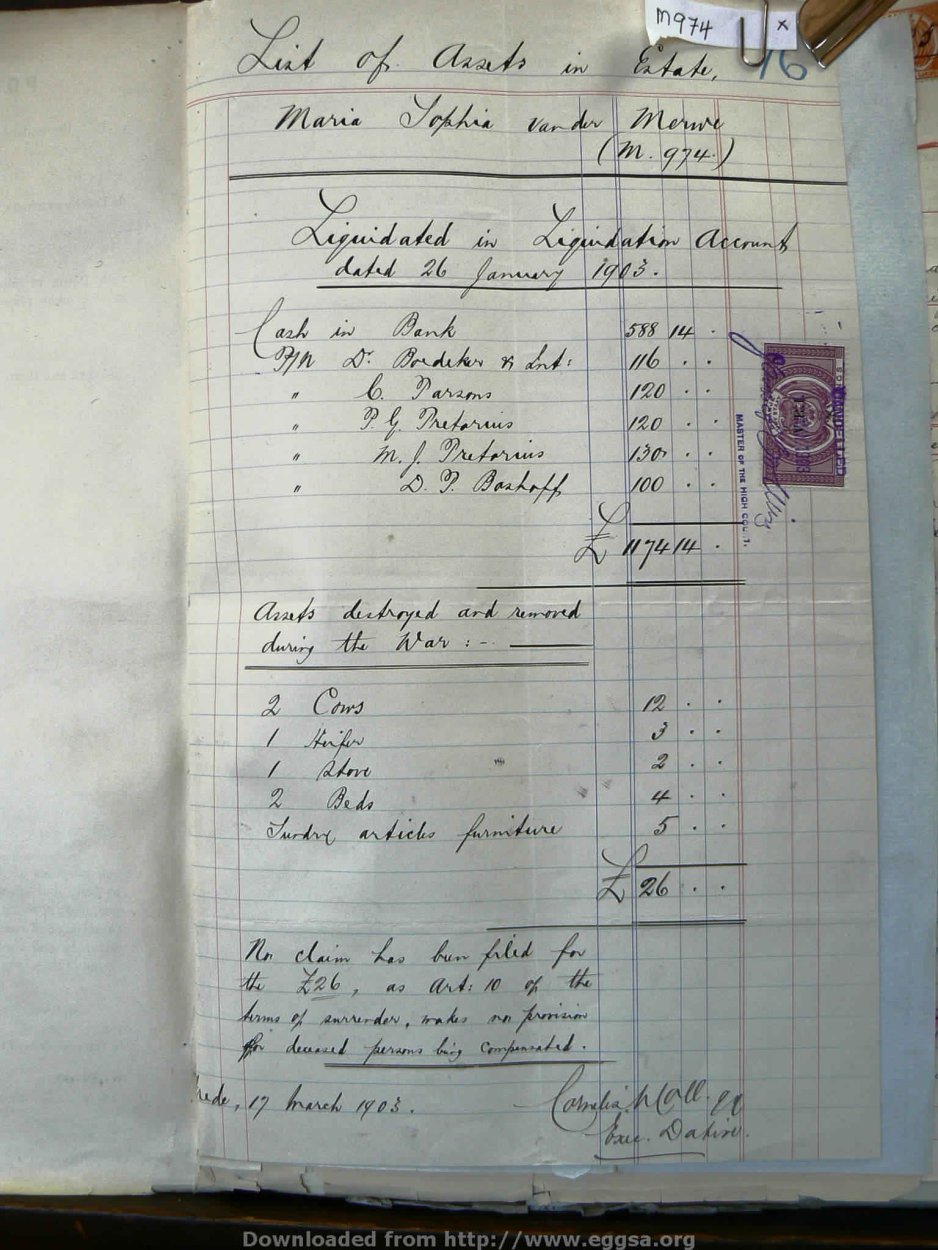 M974
x
List of Assets in Estate, 16
Maria Sophia van der Merwe
(M. 974.)
Liquidated in Liquidation Account
dated 26 January 1903.
Cash in Bank 588 14 .
P/N Dr. Boedeker & Int: 116 . .
" C. Parsons 120 . .
" P. G. Pretorius 120 . .
" M. J. Pretorius 130 . .
" D. P. Boshoff 100 . .
£ 1174 14 .
MASTER OF THE HIGH COURT.
Assets destroyed and removed
during the War : -
2 Cows 12 . .
1 Heifer 3 . .
1 Stove 2 . .
2 Beds 4 . .
Sundry articles furniture 5 . .
£ 26 . .
No claim has been filed for
the £26, as Art: 10 of the
terms of surrender, makes no provision
for deceased persons being compensated.
rede, 17 March 1903.
Cornelis
Exec. Dative.
Downloaded from http://www.eggsa.org